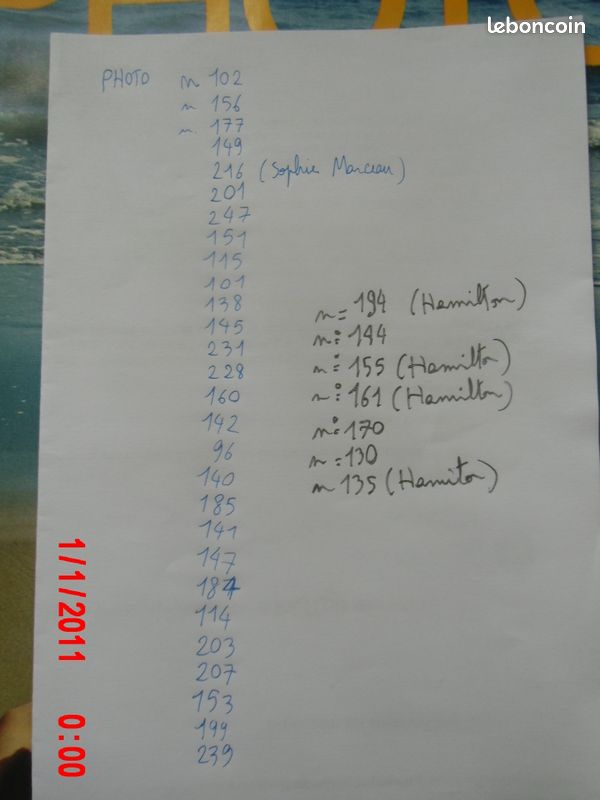 leboncoin
PHOTO n 102
n 156
n 177
149
216 (Sophie Marceau)
201
247
151
115
101
138
145
231
228
160
142
96
140
185
141
147
187
114
203
207
153
199
239
n= 194 (Hamilton)
n: 144
n: 155 (Hamilton)
n: 161 (Hamilton)
n: 170
n: 130
n 135 (Hamilton)
1/1/2011 0:00